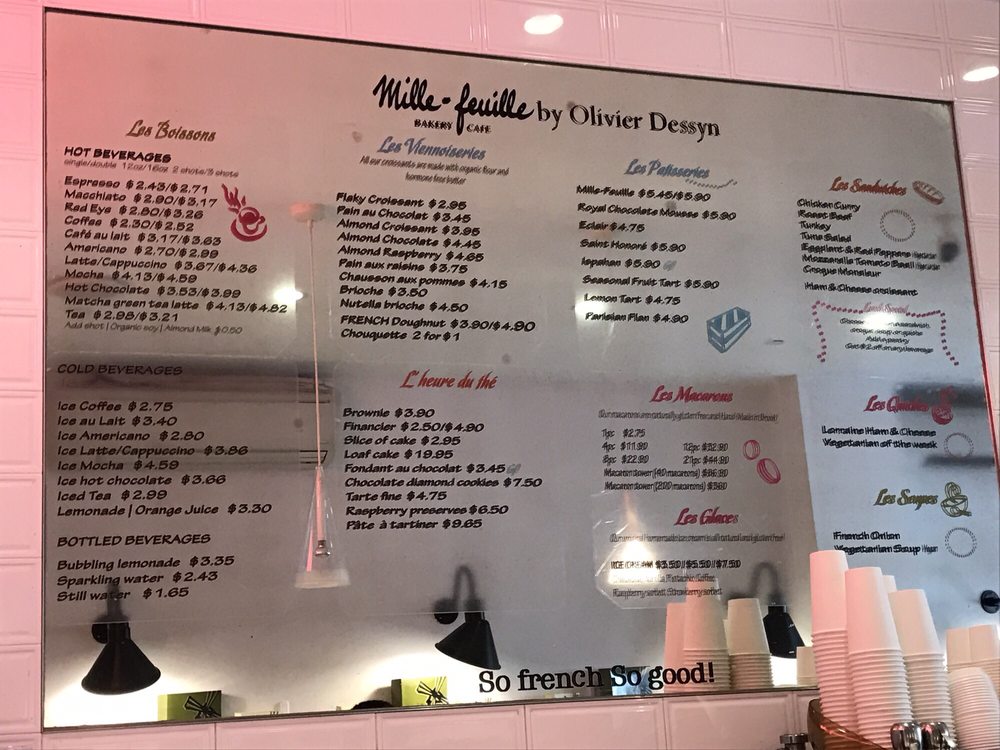 Mille-feuille by Olivier Dessyn
BAKERY CAFE
Les Boissons
HOT BEVERAGES
single/double 12oz/16oz 2 shots/3 shots
Espresso $2.43/$2.71
Macchiato $2.90/$3.17
Red Eye $2.80/$3.26
Coffee $2.30/$2.52
Café au lait $3.17/$3.63
Americano $2.70/$2.99
Latte/Cappuccino $3.67/$4.36
Mocha $4.13/$4.59
Hot Chocolate $3.53/$3.99
Matcha green tea latte $4.13/$4.82
Tea $2.98/$3.21
Add shot | Organic soy | Almond Milk $0.50
COLD BEVERAGES
Ice Coffee $2.75
Ice au Lait $3.40
Ice Americano $2.80
Ice Latte/Cappuccino $3.86
Ice Mocha $4.59
Ice hot chocolate $3.66
Iced Tea $2.99
Lemonade | Orange Juice $3.30
BOTTLED BEVERAGES
Bubbling lemonade $3.35
Sparkling water $2.43
Still water $1.65
Les Viennoiseries
All our croissants are made with organic flour and
hormone free butter
Flaky Croissant $2.95
Pain au Chocolat $3.45
Almond Croissant $3.95
Almond Chocolate $4.45
Almond Raspberry $4.65
Pain aux raisins $3.75
Chausson aux pommes $4.15
Brioche $3.50
Nutella brioche $4.50
FRENCH Doughnut $3.90/$4.90
Chouquette 2 for $1
L'heure du thé
Brownie $3.90
Financier $2.50/$4.90
Slice of cake $2.95
Loaf cake $19.95
Fondant au chocolat $3.45
Chocolate diamond cookies $7.50
Tarte fine $4.75
Raspberry preserves $6.50
Pâte à tartiner $9.65
Les Patisseries
Mille-Feuille $5.45/$5.90
Royal Chocolate Mousse $5.90
Eclair $4.75
Saint Honoré $5.90
Ispahan $5.90
Seasonal Fruit Tart $5.90
Lemon Tart $4.75
Parisian Flan $4.90
Les Macarons
Our macarons are naturally gluten free and
1pc $2.75
4pc $11.90 12pc
8pc $22.90 21pc
Macaron tower (40 macarons)
Macaron tower (200 macarons)
Les Glaces
ICE CREAM $3.50/$5.50/$7.50
Pistachio Coffee
Raspberry sorbet Strawberry sorbet
Les Sandwiches
Chicken Curry
Roast Beef
Turkey
Tuna Salad
Eggplant & Red Peppers
Mozzarella Tomato Basil
Croque Monsieur
Ham & Cheese croissant
Lunch Special
Les Quiches
Lorraine Ham & Cheese
Vegetarian of the week
Les Soupes
French Onion
Vegetarian Soup
So french So good!